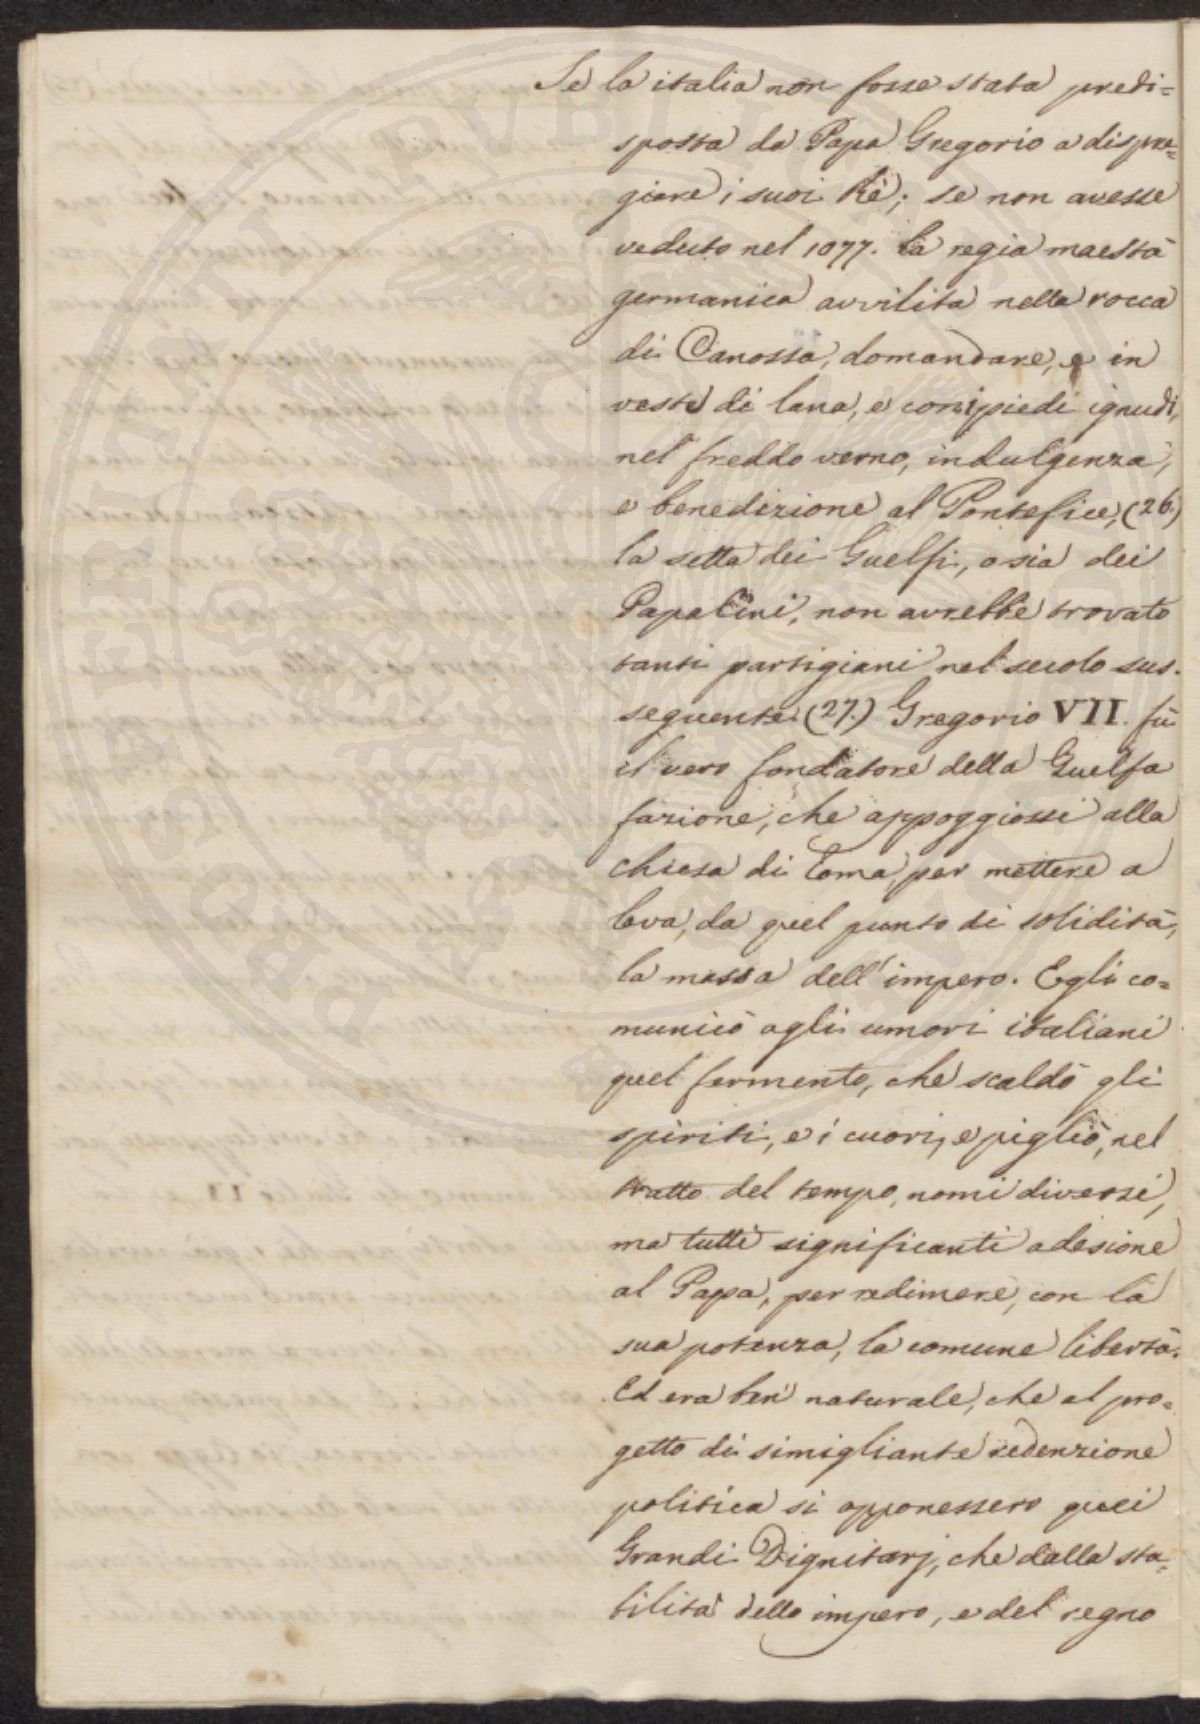 Se la italia non fosse stata predi=
sposta da Papa Gregorio a dispre=
giare i suoi Rè; se non avesse
veduto nel 1077. la regia maestà
germanica avvilita nella rocca
di Canossa, domandare, e in
veste di lana, e con i piedi ignudi,
nel freddo verno, indulgenza,
e benedizione al Pontefice, (26.)
la setta dei Guelfi, o sia dei
Papalini, non avrebbe trovato
tanti partigiani nel secolo sus=
seguente. (27.) Gregorio VII. fù
il vero fondatore della Guelfa
fazione, che appoggiossi alla
chiesa di Roma, per mettere a
leva, da quel punto di solidità,
la massa dell'impero. Egli co=
municò agli umori italiani
quel fermento, che scaldò gli
spiriti, e i cuori, e pigliò, nel
tratto del tempo, nomi diversi,
ma tutti significanti adesione
al Papa, per redimere, con la
sua potenza, la comune libertà.
Ed era ben naturale, che al pro=
getto di simigliante redenzione
politica si opponessero quei
Grandi Dignitarj, che dalla sta=
bilità dello impero, e del regno
PROSPERITATI PUBLICAE